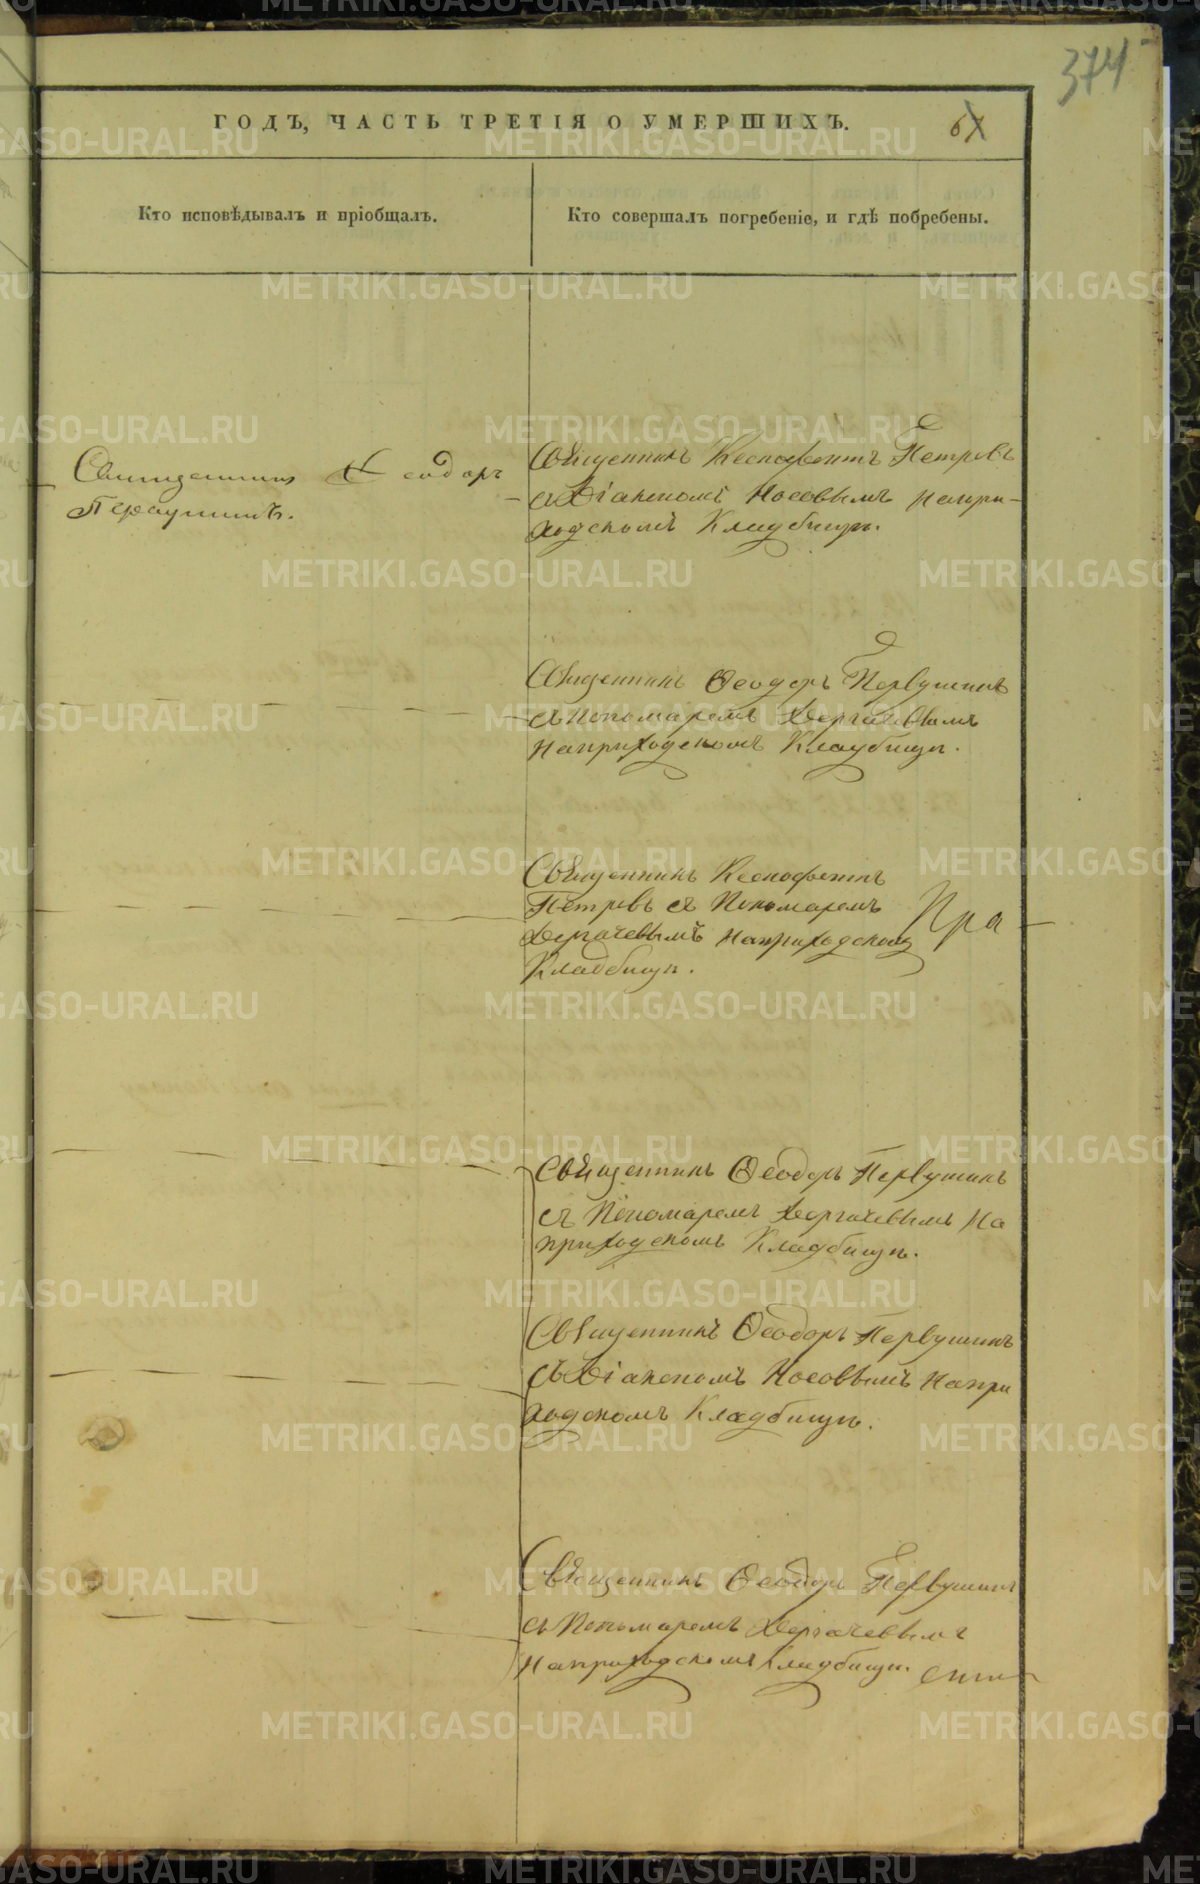 374
ГОДЪ, ЧАСТЬ ТРЕТІЯ О УМЕРШИХЪ.
Кто исповѣдывалъ и пріобщалъ.
Кто совершалъ погребеніе, и гдѣ побребены.
Священникъ Ѳеодоръ
Первушинъ.
Священникъ Ксенофонтъ Петровъ
съ Діакономъ Носовымъ напри-
ходскомъ Кладбищѣ.
Священникъ Ѳеодоръ Первушинъ
съ пономаремъ Дергачевымъ
наприходскомъ Кладбищѣ.
Священникъ Ксенофонтъ
Петровъ съ Пономаремъ
Дергачевымъ наприходскомъ
Кладбищѣ.
Пра
Священникъ Ѳеодоръ Первушинъ
съ Пономаремъ Дергачевымъ на
приходскомъ Кладбищѣ.
Священникъ Ѳеодоръ Первушинъ
съ Діакономъ Носовымъ напри
ходскомъ Кладбищѣ.
Священникъ Ѳеодоръ Первушинъ
съ Пономаремъ Дергачевымъ
наприходскомъ Кладбищѣ.
METRIKI.GASO-URAL.RU